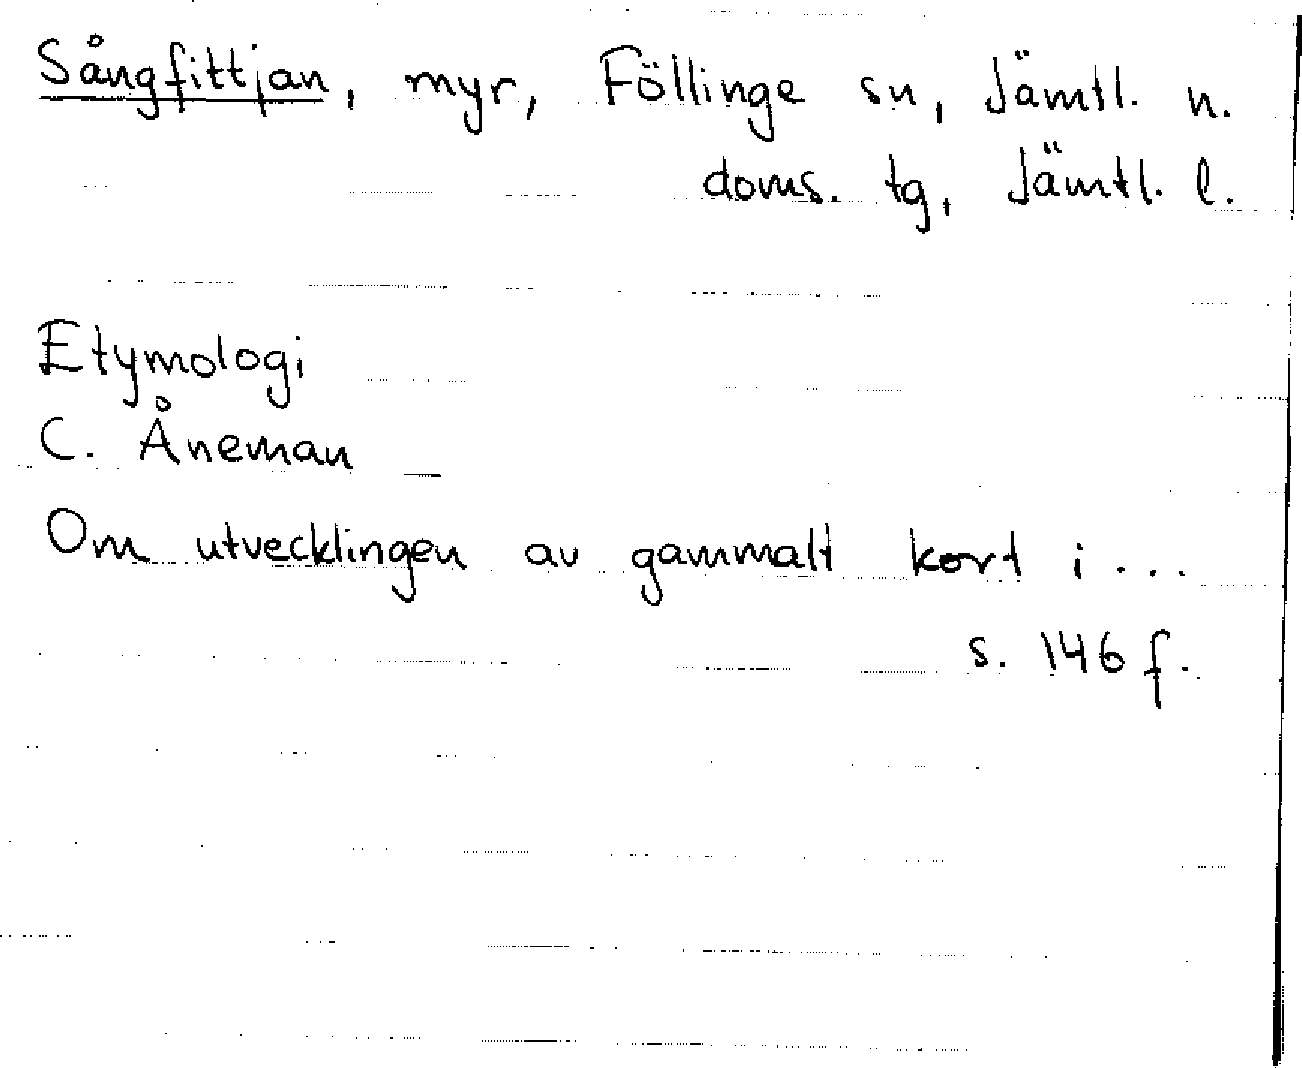 Sångfittjan, myr, Föllinge sn, Jämtl. n.
doms. tg, Jämtl. l.
Etymologi
C. Åneman
Om utvecklingen av gammalt kort i...
s. 146 f.